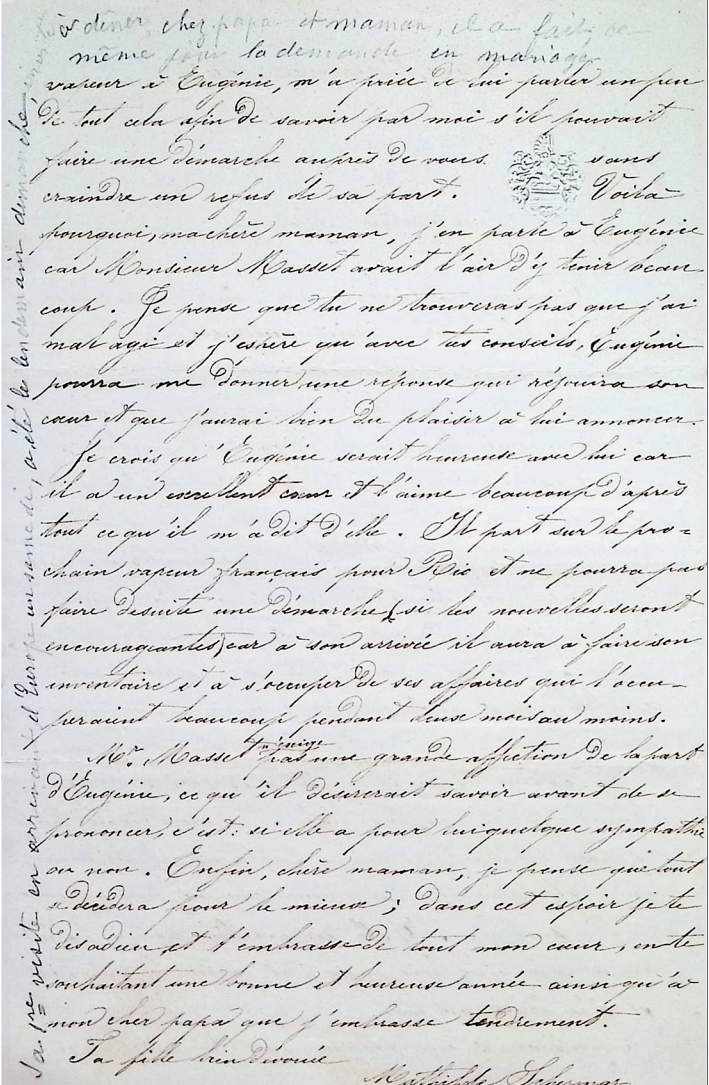 à dîner, chez papa et maman, il a fait ce
même jour la demande en mariage
vapeur à Eugénie, m'a priée de lui parler un peu
de tout cela afin de savoir par moi s'il pouvait
faire une démarche auprès de vous sans
craindre un refus de sa part. Voilà
pourquoi, ma chère maman, j'en parle à Eugénie
car Monsieur Masset avait l'air d'y tenir beau-
coup. Je pense que tu ne trouveras pas que j'ai
mal agi et j'espère qu'avec tes conseils, Eugénie
pourra me donner une réponse qui réjouira son
cœur et que j'aurai bien du plaisir à lui annoncer.
Je crois qu'Eugénie serait heureuse avec lui car
il a un excellent cœur et l'aime beaucoup d'après
tout ce qu'il m'a dit d'elle. Il part sur le pro-
chain vapeur français pour Rio et ne pourra pas
faire desuite une démarche (si les nouvelles seront
encourageantes) car à son arrivée il aura à faire son
inventaire et à s'occuper de ses affaires qui l'occu-
peraient beaucoup pendant deux mois au moins.
Mr. Masset n'exige pas une grande affection de la part
d'Eugénie, ce qu'il désirerait savoir avant de se
prononcer, c'est: si elle a pour lui quelque sympathie
ou non. Enfin, chère maman, je pense que tout
se décidera pour le mieux; dans cet espoir je te
dis adieu et t'embrasse de tout mon cœur, en te
souhaitant une bonne et heureuse année ainsi qu'à
mon cher papa que j'embrasse tendrement.
Ta fille bien dévouée
Mathilde
Sa 1re visite en arrivant d'Europe un samedi, a été le lendemain dimanche